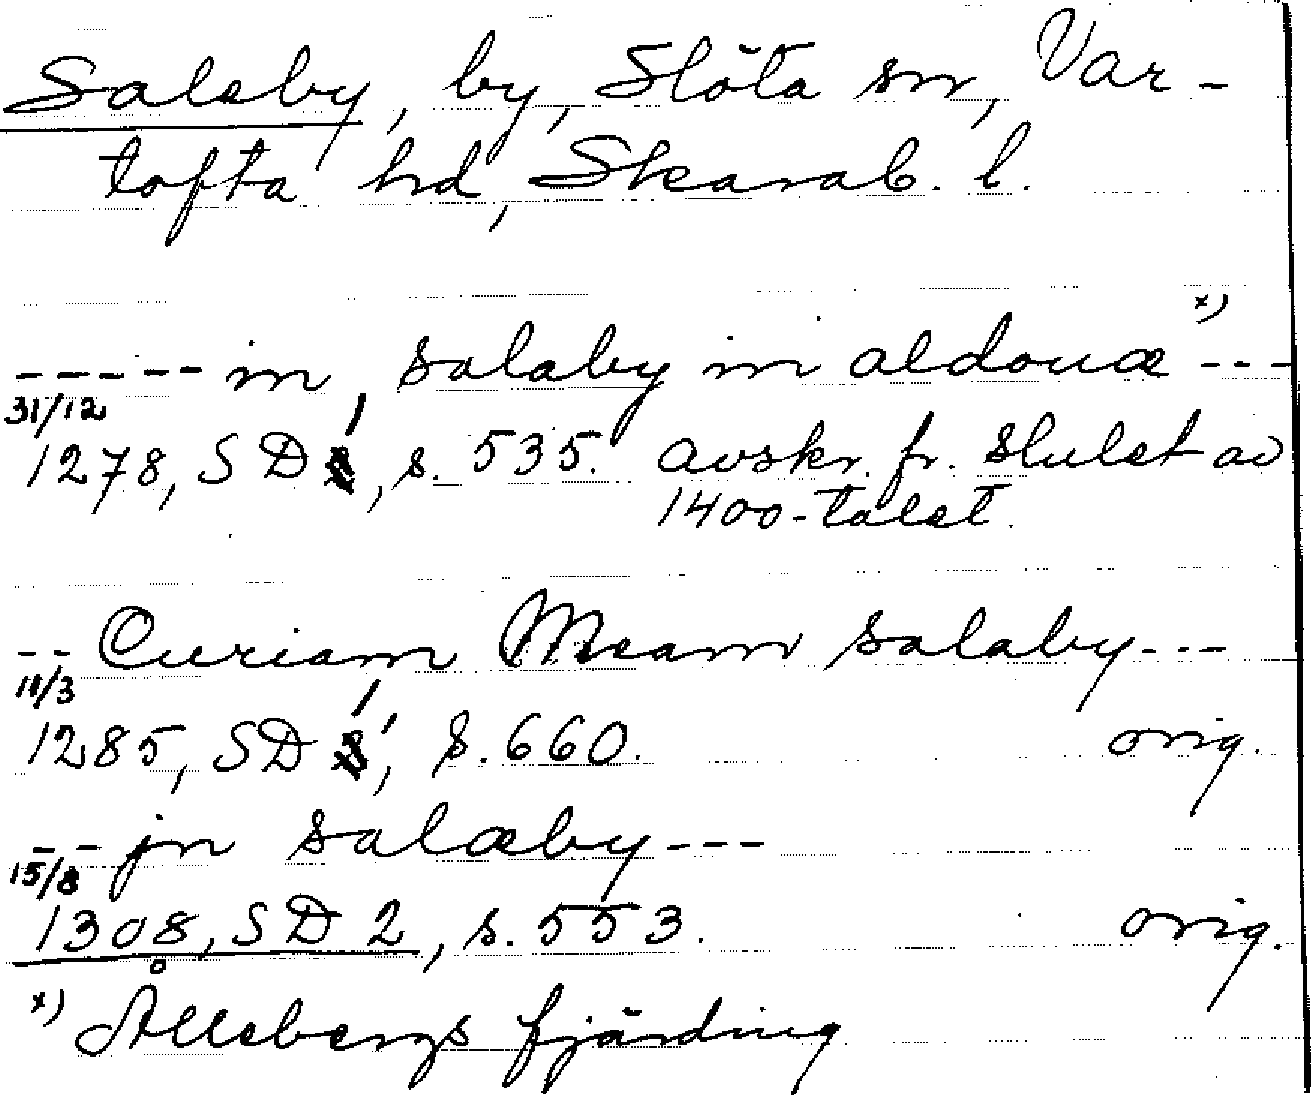 Saleby, by, Slöta sn, Var-
tofta hd, Skarab. l.
----- in salaby in aldouæ x) ---
31/12
1278, SD 1, s. 535. Avskr. fr. slutet av
1400-talet.
-- Curiam Meam salaby ---
11/3
1285, SD 1, s. 660. orig.
-- jn salæby ---
15/8
1308, SD 2, s. 553. orig.
x) Ållebergs fjärding